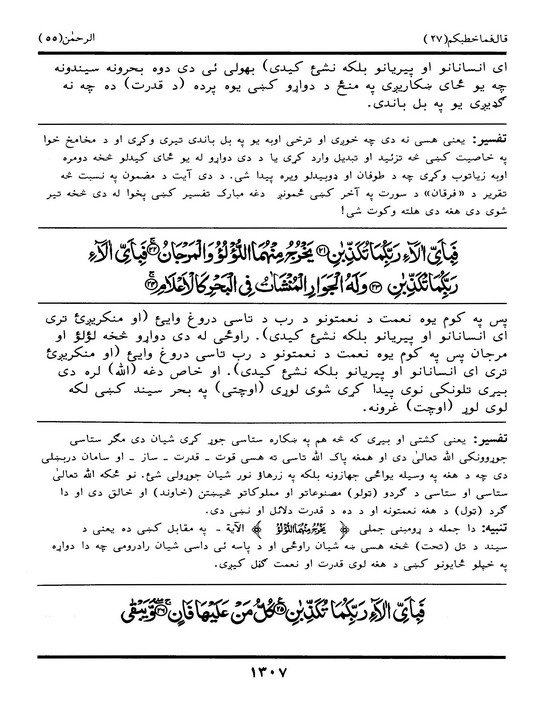 قال فماخطبكم(٢٧) الرحمٰن(٥٥)
اې انسانانو او پیریانو بلکه نشئ کېدی) بهولی ئې دی دوه بحرونه سیندونه
چه یو ځای ښکاریږی په منځ د دواړو کښې یوه پرده (د قدرت) ده چه نه
ګډیږی یو په بل باندی.
تفسیر: یعنی هسې نه دی چه خوږې او ترخې اوبه یو په بل باندی تیری وکړی او د مخامخ خوا
په خاصیت کښې څه تزئید او تبدیل وارد کړی یا د دی دواړو له یو ځای کیدلو څخه دومره
اوبه زیاتوب وکړی چه د طوفان او ډوبیدلو ویره پیدا شی. د دی آیت د مضمون په نسبت څه
تقریر د «فرقان» د سورت په آخر کښې ځمونږ دغه مبارک تفسیر کښې پخوا له دی څخه تیر
شوی دی هغه دی هلته وکوت شی!
فَبِاَيِّ اٰلَآءِ رَبِّكُمَا تُكَذِّبٰنِ ﴿٢١﴾ يَخْرُجُ مِنْهُمَا اللُّؤْلُؤُ وَالْمَرْجَانُ ﴿٢٢﴾ فَبِاَيِّ اٰلَآءِ
رَبِّكُمَا تُكَذِّبٰنِ ﴿٢٣﴾ وَلَهُ الْجَوَارِ الْمُنْشَاٰتُ فِي الْبَحْرِ كَالْاَعْلَامِ ﴿٢٤﴾
پس په کوم یوه نعمت د نعمتونو د رب د تاسې دروغ وایئ (او منکریږئ ترې
اې انسانانو او پیریانو بلکه نشئ کیدی). راوځی له دی دواړو څخه لؤلؤ او
مرجان پس په کوم یوه نعمت د نعمتونو د رب تاسې دروغ وایئ (او منکریږئ
ترې اې انسانانو او پیریانو بلکه نشئ کیدی). او خاص دغه (الله) لره دی
بیړی تلونکی نوی پیدا کړی شوی لوړی (اوچتی) په بحر سیند کښې لکه
لوی لوړ (اوچت) غرونه.
تفسیر: یعنی کشتی او بیړی که څه هم په ښکاره ستاسې جوړ کړی شیان دی مګر ستاسې
جوړوونکی الله تعالیٰ دی او هغه پاک الله تاسې ته هسې قوت - قدرت - ساز - او سامان دربښلی
دی چه د هغه په وسیله یواځې جهازونه بلکه په زرهاؤ نور شیان جوړولی شئ. نو ځکه الله تعالیٰ
ستاسې او ستاسې د ګردو (ټولو) مصنوعاتو او مملوکاتو څیښتن (خاوند) او خالق دی او دا
ګرد (ټول) د هغه نعمتونه او د ده د قدرت دلائل او نښې دی.
تنبیه: دا جمله د ړومبنی جملې ﴿ يَخْرُجُ مِنْهُمَا اللُّؤْلُؤُ ﴾ الآیة - په مقابل کښې ده یعنی د
سیند د تل (تحت) څخه هسې ښه شیان راوځی او د پاسه ئې داسې شیان رادرومی چه دا دواړه
په خپلو ځایونو کښې د هغه لوی قدرت او نعمت ګڼل کیږی.
فَبِاَيِّ اٰلَآءِ رَبِّكُمَا تُكَذِّبٰنِ ﴿٢٥﴾ كُلُّ مَنْ عَلَيْهَا فَانٍ ﴿٢٦﴾ وَّيَبْقٰى
١٣٠٧